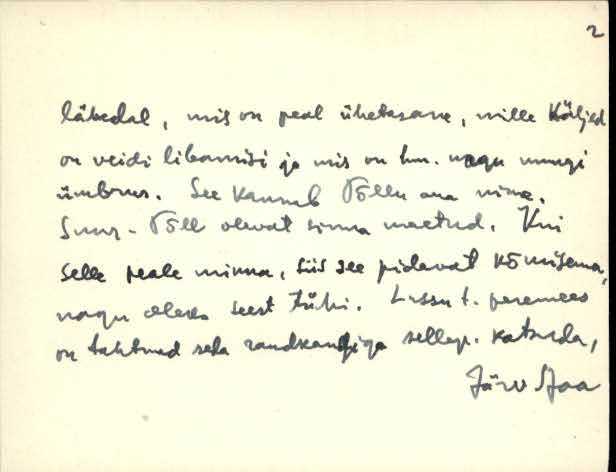 2
lähedal, mis on pealt ühetasane, mille küljed
on veidi libamisi ja mis on hm. nagu mungi
ümbrus. See kannab Tõllu oma nime.
Suur-Tõll olevat sinna maetud. Kui
selle peale minna, siis see pidavat kõmisema,
nagu oleks seest tühi. Lassu t. peremees
on tahtnud seda raudkangiga sellep. katsuda,
Järv Aaa